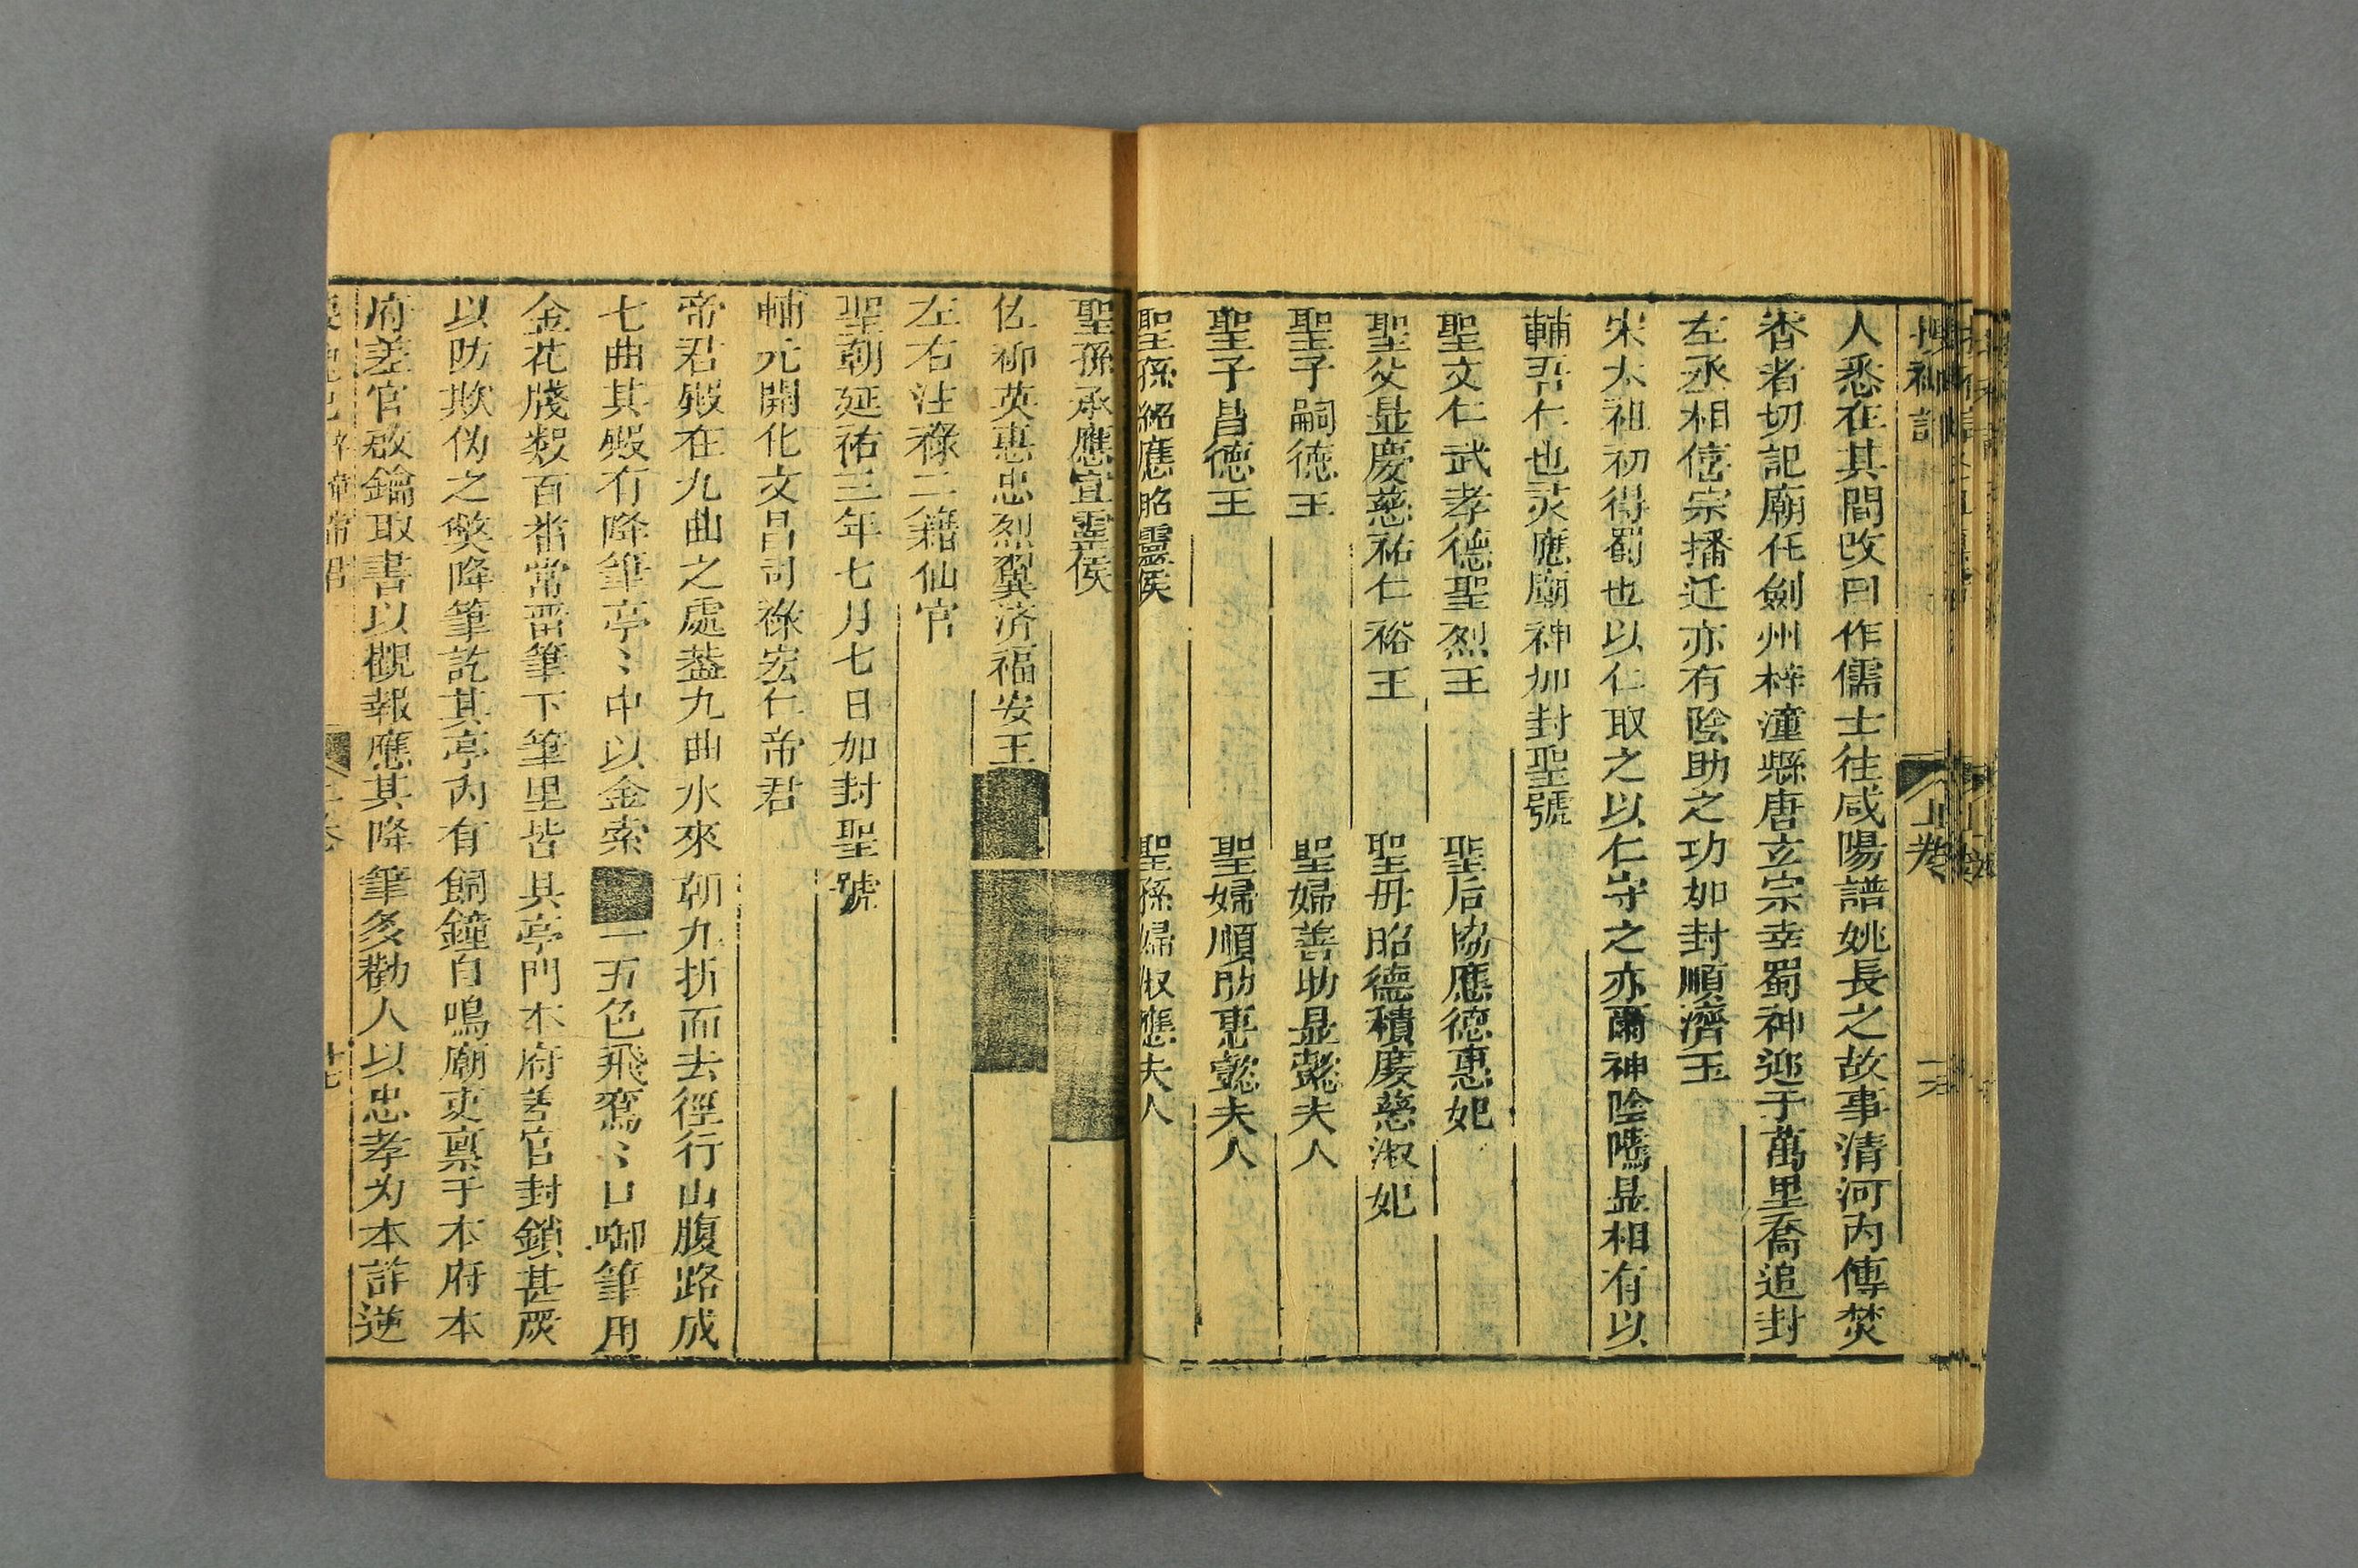 搜神記 上卷
人悉在其間改曰作儒士往咸陽譜姚長之故事清河內傳焚
香者切記廟在劍州梓潼縣唐玄宗幸蜀神迎于萬里喬追封
左丞相僖宗播迁亦有陰助之功加封順濟王
宋太祖初得蜀也以仁取之以仁守之亦爾神陰隲显相有以
輔吾仁也灵應廟神加封聖號
聖文仁武孝德聖烈王 聖后協應德惠妃
聖父显慶慈祐仁裕王 聖毋昭德積慶慈淑妃
聖子嗣德王 聖婦善助显懿夫人
聖子昌德王 聖婦順助惠懿夫人
聖孫紹應昭靈侯 聖孫婦淑應夫人
聖孫承應宣靈侯
仫柳英惠忠烈翼济福安王
左右注祿二籍仙官
聖朝延祐三年七月七日加封聖號
輔元開化文昌司祿宏仁帝君
帝君殿在九曲之處葢九曲水來朝九折而去徑行山腹路成
七曲其殿有降筆亭〻中以金索一五色飛鸞〻口啣筆用
金花牋数百番常畱筆下筆里皆具亭門本府誉官封鎖甚嚴
以防欺伪之獘降筆訖其亭內有銅鐘自鳴廟吏禀于本府本
府差官啟鑰取書以觀報應其降筆多勸人以忠孝为本詐逆